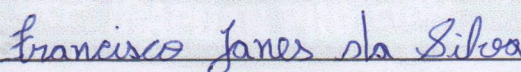 Francisco Janes da Silva